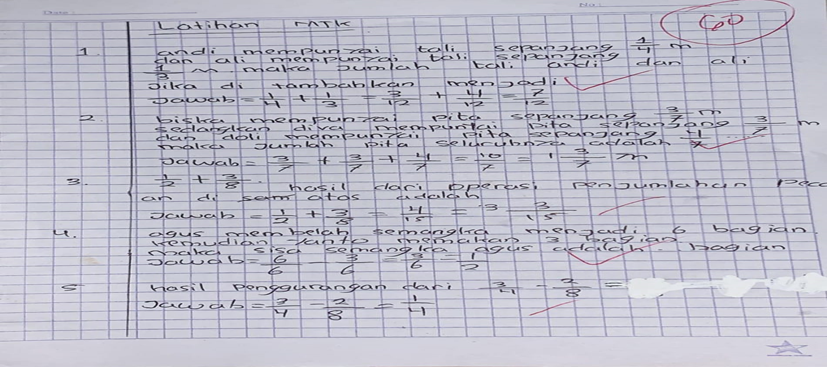 Latihan MTK
60
1. andi mempunyai tali sepanjang 1/4 m
dan ali mempunyai tali sepanjang
1/3 m maka Jumlah tali andi dan ali
Jika di tambahkan menjadi
Jawab = 1/4 + 1/3 = 3/12 + 4/12 = 7/12
2. biska mempunyai pita sepanjang 3/7 m
sedangkan diva mempunyai pita sepanjang 3/7 m
dan doli mempunyai pita sepanjang 4/7
maka Jumlah pita seluruhnya adalah
Jawab = 3/7 + 3/7 + 4/7 = 10/7 = 1 3/7 m
3. 1/2 + 3/8 . hasil dari operasi penjumlahan peca
an di atas adalah
Jawab = 1/2 + 3/8 = 4/15 = 3 3/15
4. agus membelah semangka menjadi 6 bagian
kemudian Yanto memakan 3 bagian
maka sisa semangka agus adalah bagian
Jawab = 6/6 - 3/6 = 3/6 = 1/2
5 hasil pengurangan dari 3/4 - 2/8 =
Jawab = 3/4 - 2/8 = 1/4